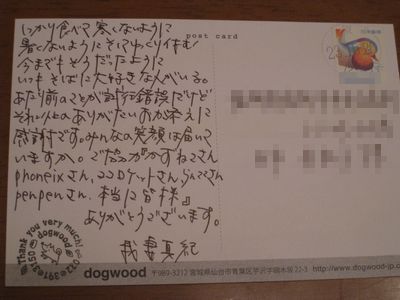 しっかり食べて寒くないように
暑くないようにそしてゆっくり休む!
今までもそうだったように
いつもそばに大好きなんがいる。
あたり前のことが試行錯誤だけど
それ以上のありがたいお答えに
感謝です。みんなの笑顔は届いて
いますか。ご協力 かずねこさん
phoneixさん、ココロケットさん、らんてさん
penpenさん、本当に皆様』
ありがとうございます。
我妻真紀
post card
日本郵便
Thank you very much!
dogwood
dogwood 〒989-3212 宮城県仙台市青葉区芋沢字畑木坂22-3 http://www.dogwood-jp.co